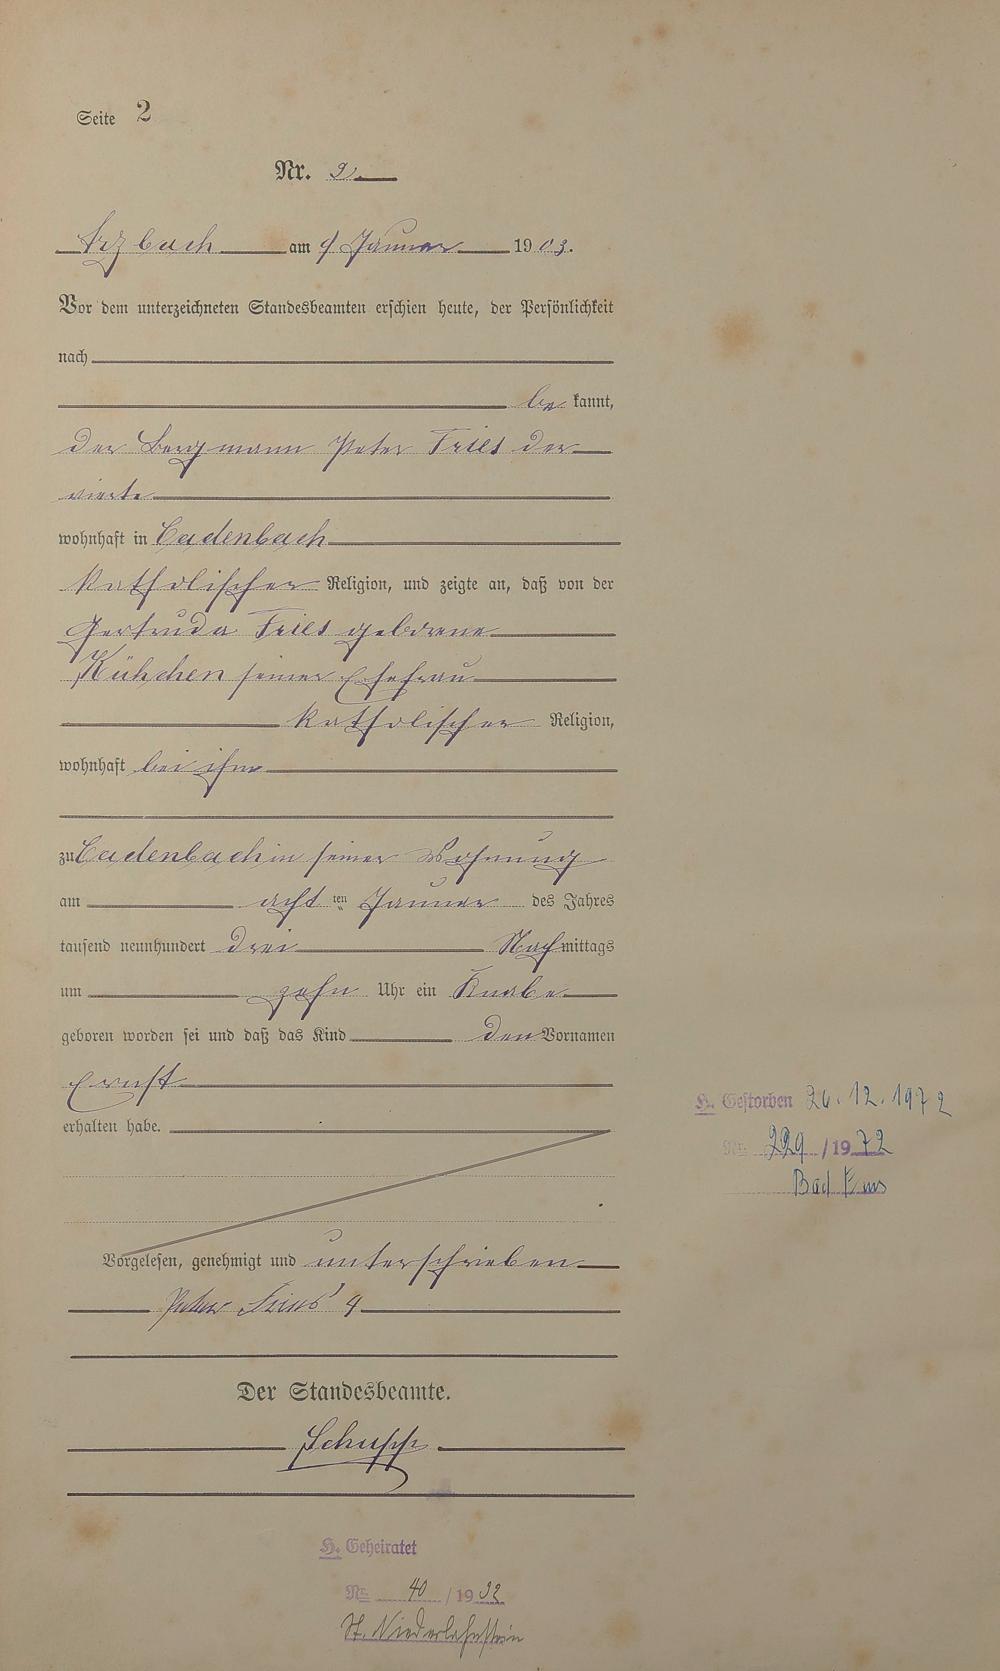 Seite 2
Nr. 2.
Arzbach am 9 Januar 1903.
Vor dem unterzeichneten Standesbeamten erschien heute, der Persönlichkeit
nach
be kannt,
der Bergmann Peter Fries der
vierte
wohnhaft in Cadenbach
katholischer Religion, und zeigte an, daß von der
Gertruda Fries geborene
Kühchen seiner Ehefrau
katholischer Religion,
wohnhaft bei ihm
zu Cadenbach in seiner Wohnung
am acht ten Januar des Jahres
tausend neunhundert drei Nachmittags
um zehn Uhr ein Knabe
geboren worden sei und daß das Kind den Vornamen
Ernst
erhalten habe.
H. Gestorben 26.12.1972
Nr. 229 / 1972
Bad Ems
Vorgelesen, genehmigt und unterschrieben
Peter Fries 4
Der Standesbeamte.
Schupp
H. Geheiratet
Nr. 40 / 1932
St. Niederlahnstein